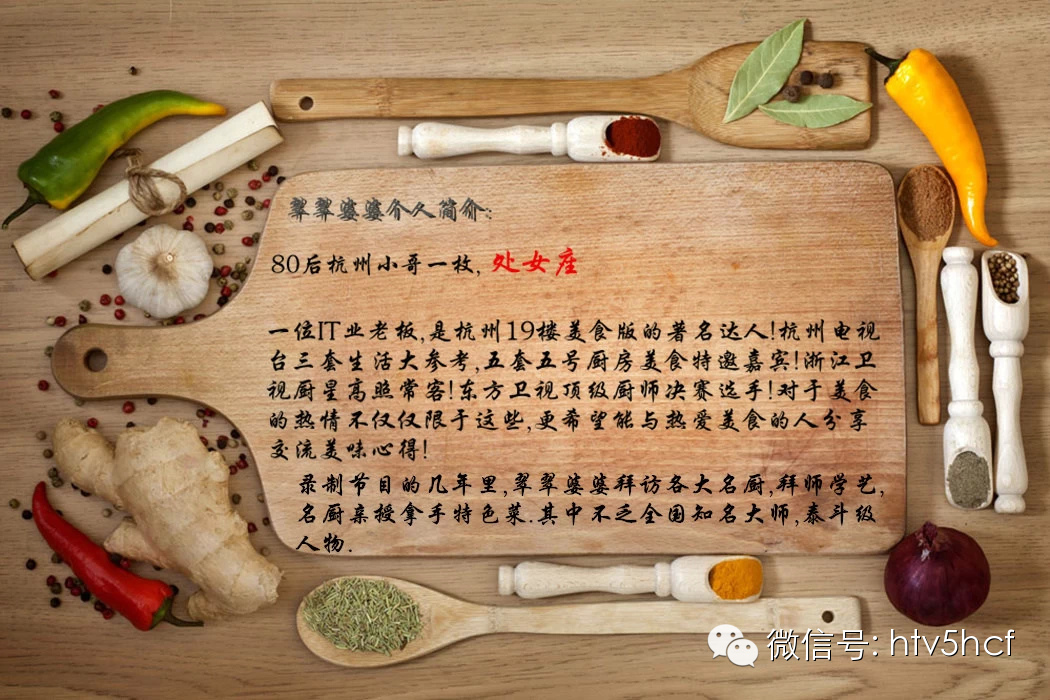 翠翠婆婆个人简介:
80后杭州小哥一枚,处女座
一位IT业老板,是杭州19楼美食版的著名达人!杭州电视
台三套生活大参考,五套五号厨房美食特邀嘉宾!浙江卫
视厨星高照常客!东方卫视顶级厨师决赛选手!对于美食
的热情不仅仅限于这些,更希望能与热爱美食的人分享
交流美味心得!
录制节目的几年里,翠翠婆婆拜访各大名厨,拜师学艺,
名厨亲授拿手特色菜.其中不乏全国知名大师,泰斗级
人物.
微信号: htv5hcf